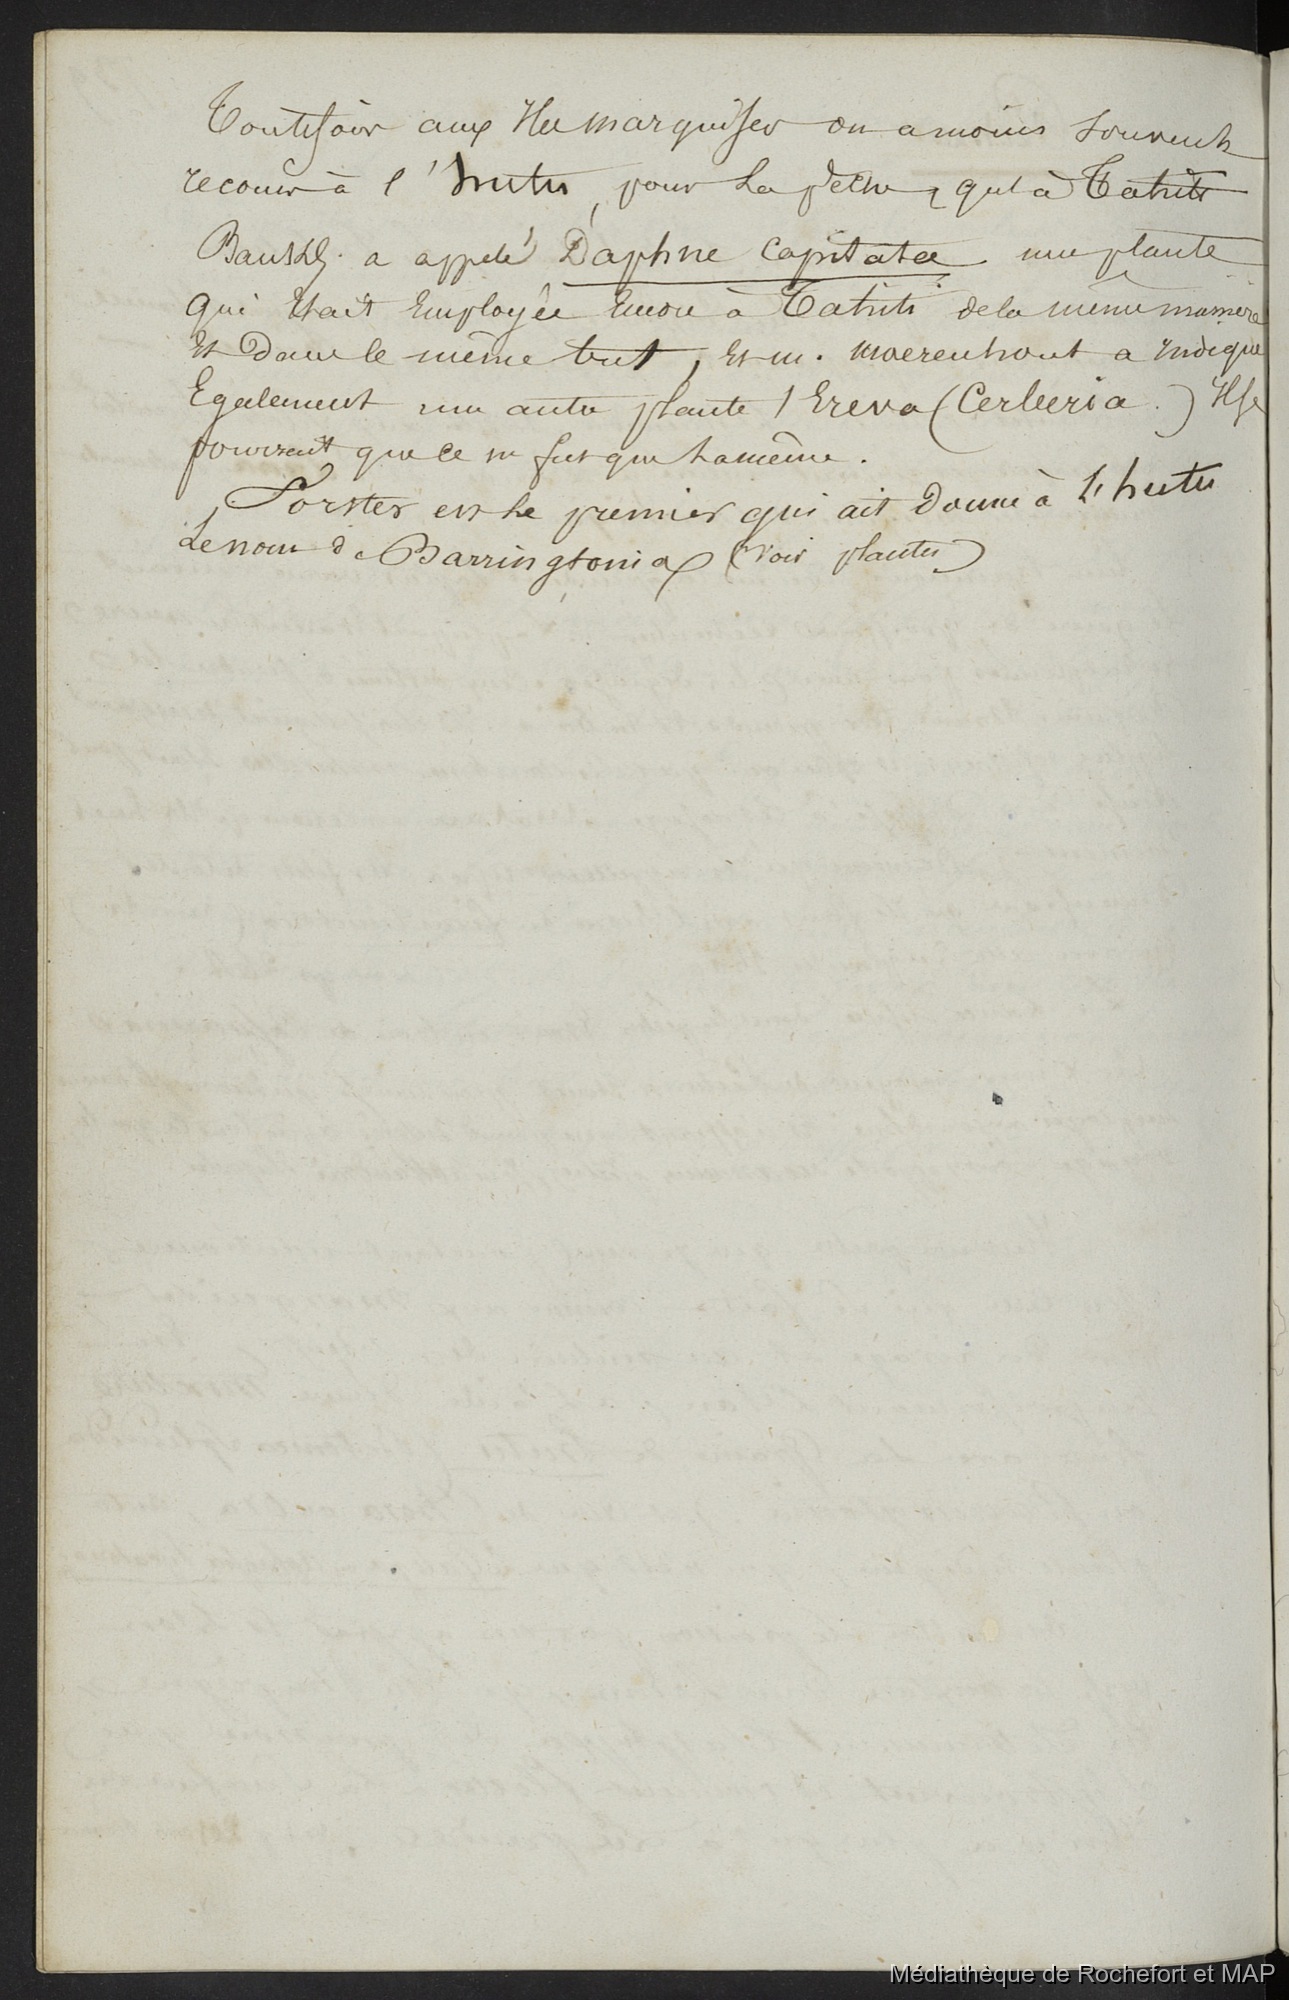 Toutefois aux Iles marquises on a moins souvent
recours à l'hutu, pour la pêche, qu'à Tahiti
Banks. a appelé Daphne Capitatae une plante
qui était Employée Encore à Tahiti de la même manière
Et dans le même but, Et m. moerenhout a Indiqué
Egalement une autre plante l'Ereva (Cerberia.) Il se
pourrait que ce ne fut que la même.
Forster est le premier qui ait donné à l'hutu
Le nom de Barringtonia (voir plantes)
Médiathèque de Rochefort et MAP